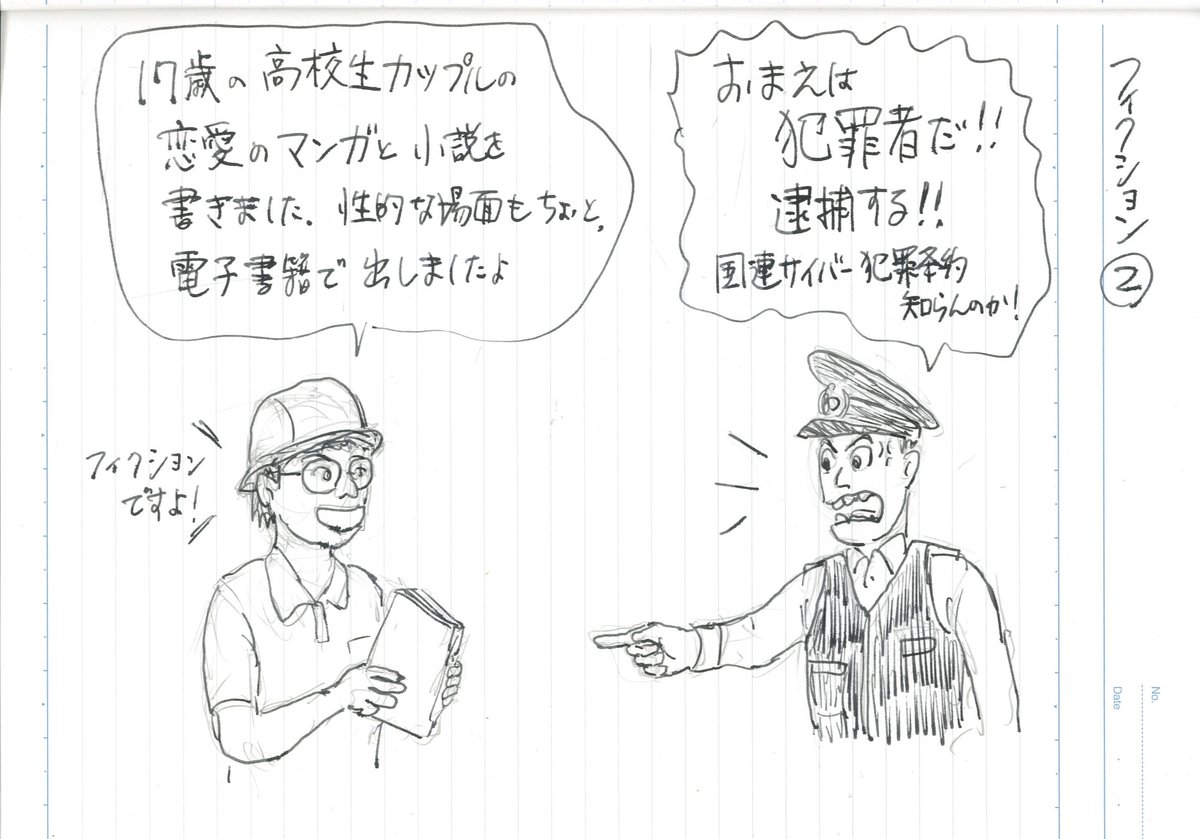 フィクション②
17歳の高校生カップルの
恋愛のマンガと小説を
書きました。性的な場面もちょっと。
電子書籍で出しましたよ
フィクション
ですよ!
おまえは
犯罪者だ!!
逮捕する!!
国連サイバー犯罪条約
知らんのか!
No.
Date